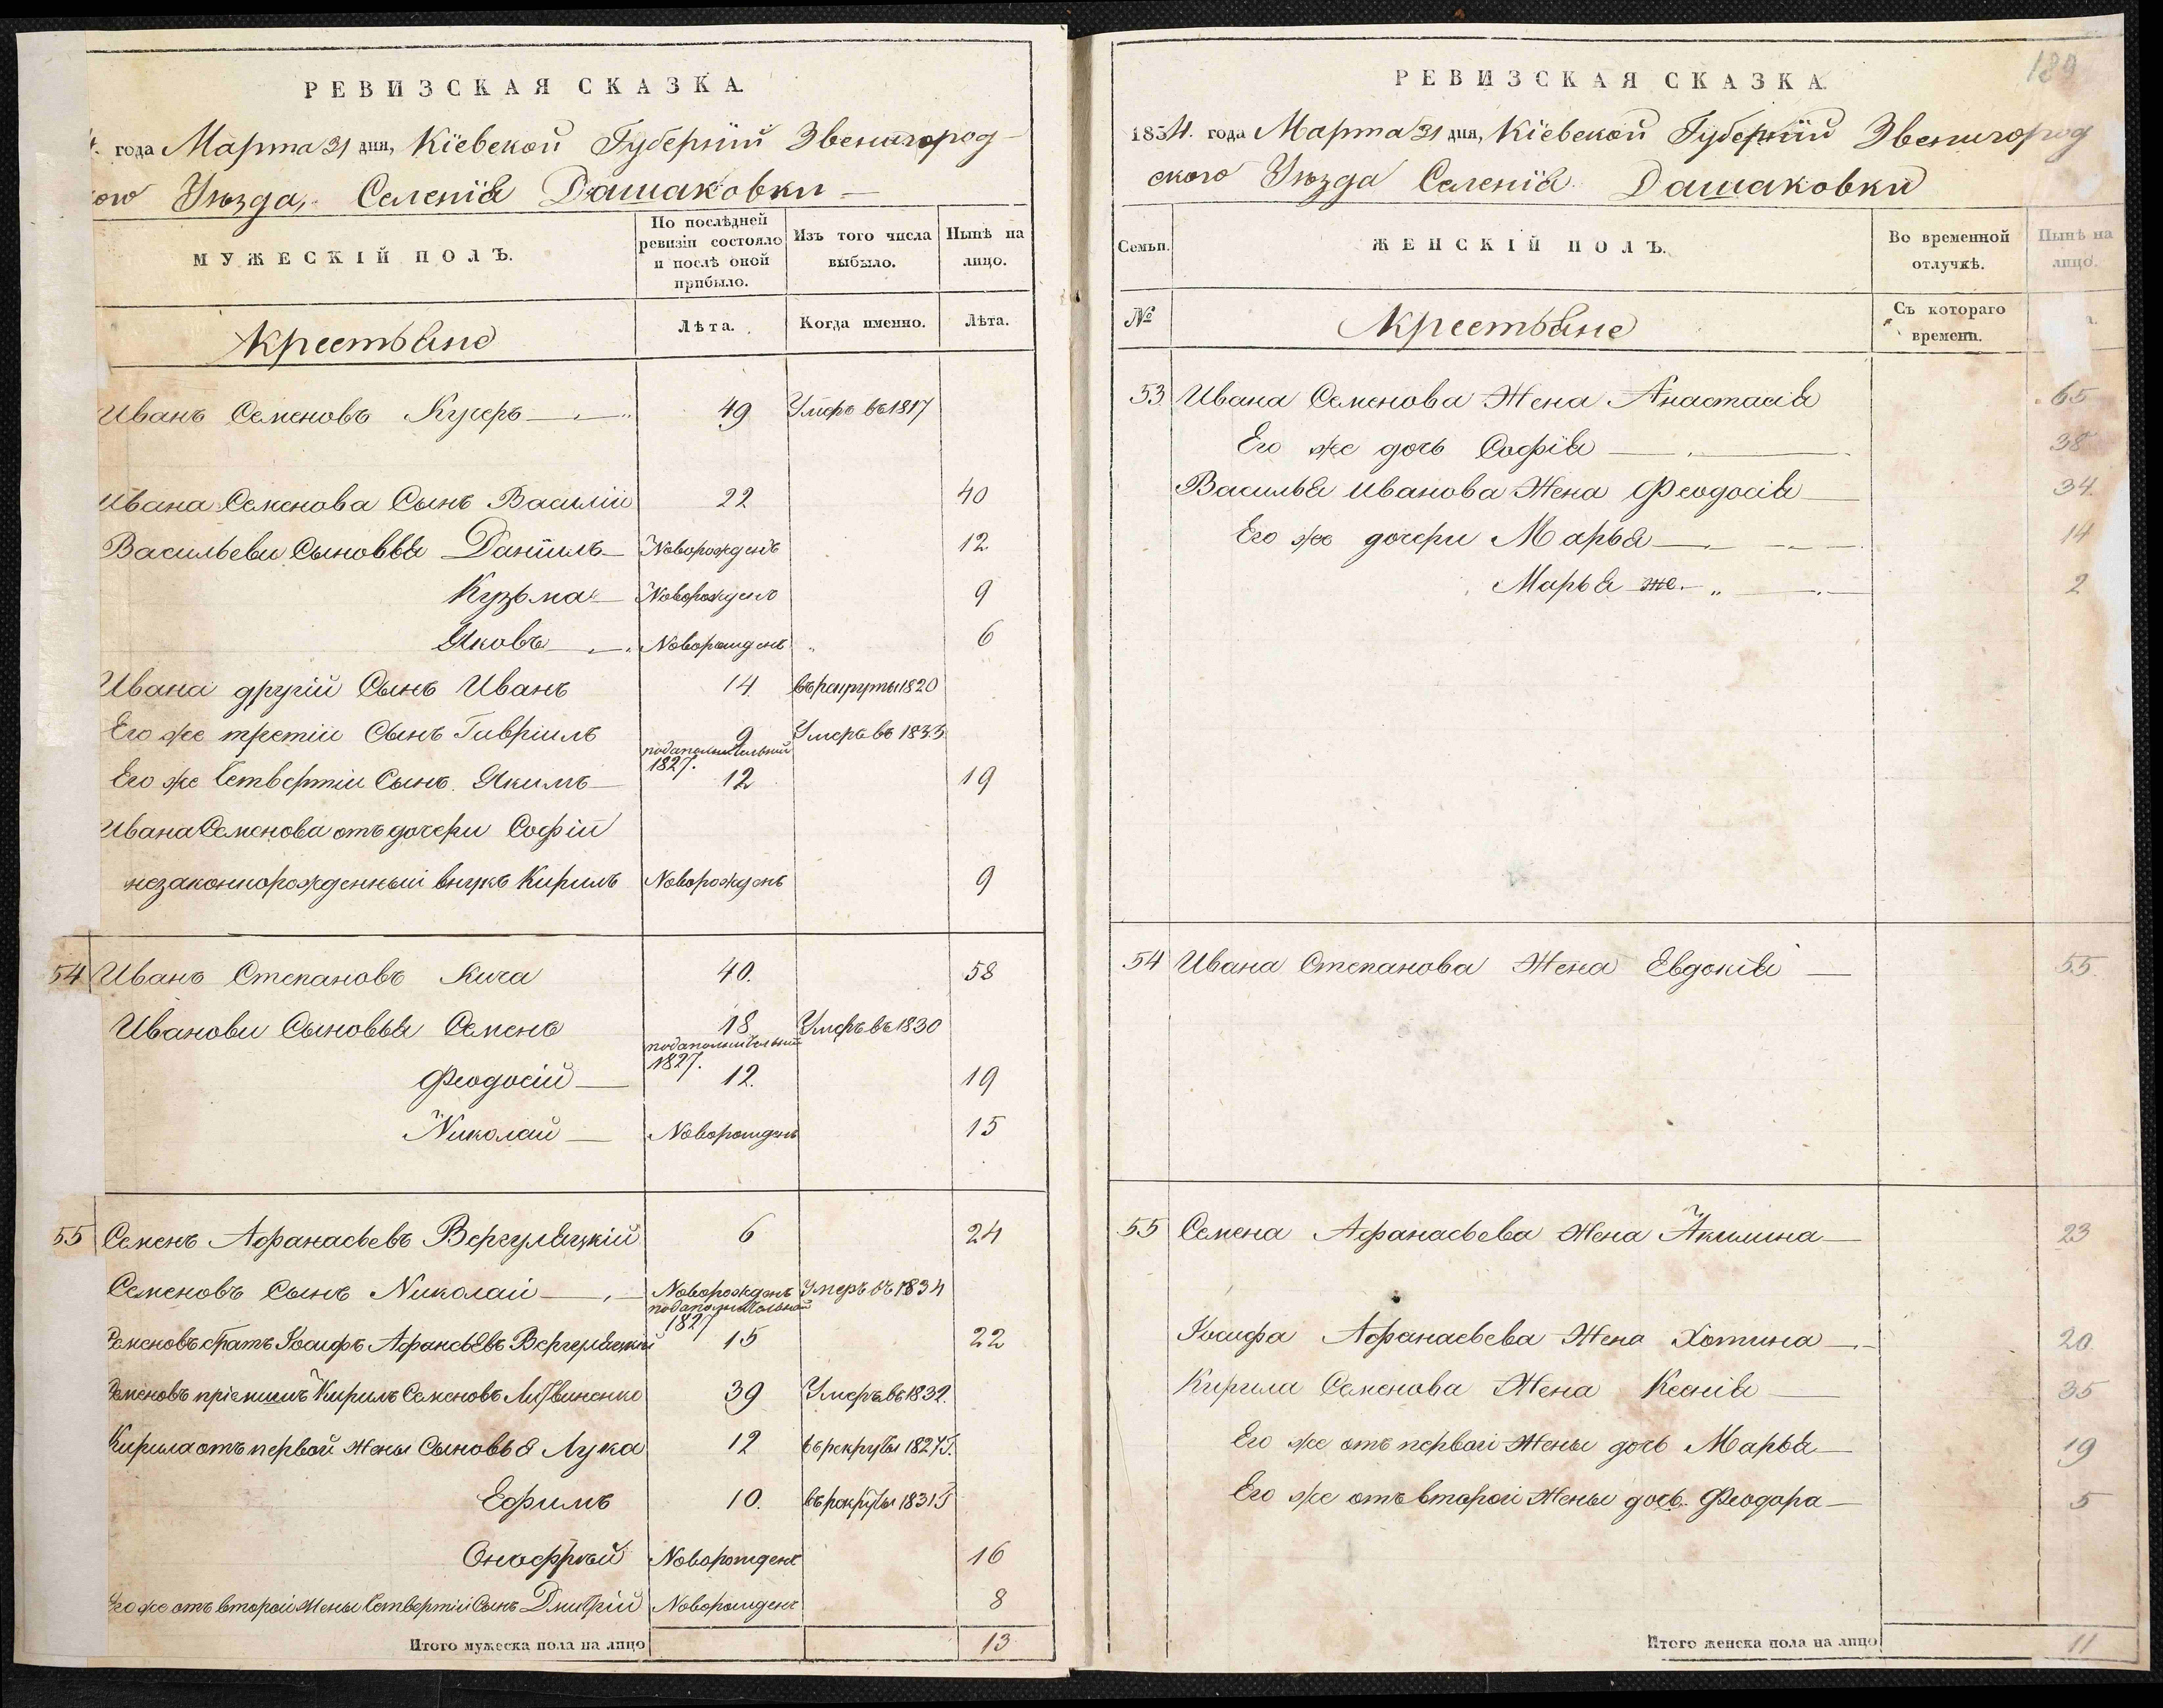 РЕВИЗСКАЯ СКАЗКА.
года Марта 31 дня, Кіевской Губерніи Звенигород-
Уѣзда, Селенія Дашаковки
МУЖЕСКІЙ ПОЛЪ.
По послѣдней ревизіи состояло и послѣ оной прибыло.
Изъ того числа выбыло.
Нынѣ на лицо.
Крестьяне
Лѣта.
Когда именно.
Лѣта.
Иванъ Семеновъ Кучеръ 49 Умеръ въ 1817
Ивана Семенова Сынъ Василій 22 40
Васильеви Сыновья Даніилъ Новорожденъ 12
Кузьма Новорожденъ 9
Яковъ Новорожденъ 6
Ивана другій Сынъ Иванъ 14 въ рекруты 1820
Его же третіи Сынъ Гавріилъ 9 Умеръ въ 1833
1827.
Его же Четвертіи Сынъ Якимъ 12 19
Ивана Семенова отъ дочери Софіи
незаконнорожденный внукъ Кирилъ Новорожденъ 9
54 Иванъ Степановъ Кича 40. 58
Иванови Сыновья Семенъ 18 Умеръ въ 1830
1827.
Феодосій 12. 19
Николай Новорожденъ 15
55 Семенъ Афанасьевъ Вергуляцкій 6 24
Семеновъ Сынъ Николай Новорожденъ Умеръ въ 1834
1827
Семеновъ братъ Іосифъ Афанасьевъ Вергуляцкій 15 22
Семеновъ пріемышъ Кирилъ Семеновъ Литвиненко 39 Умеръ въ 1832.
Кирила отъ первой жены Сыновья Лука 12 въ рекруты 1827 г.
Ефимъ 10. въ рекруты 1831 г
Онофрій Новорожденъ 16
Его же отъ второй жены Четвертій Сынъ Дмитрій Новорожденъ 8
Итого мужеска пола на лицо 13
189
РЕВИЗСКАЯ СКАЗКА.
1834. года Марта 31 дня, Кіевской Губерніи Звенигород
ского Уѣзда Селенія Дашаковки
Семьи.
ЖЕНСКІЙ ПОЛЪ.
Во временной отлучкѣ.
Нынѣ на лицо.
№
Крестьяне
Съ котораго времени.
53 Ивана Семенова Жена Анастасія 65
Его же дочь Софія 38
Василья Иванова Жена Феодосія 34.
Его же дочери Марья 14
Марья же 2
54 Ивана Степанова Жена Евдокія 55.
55 Семена Афанасьева Жена Акилина 23
Іосифа Афанасьева Жена Хотина 20
Кирила Семенова Жена Ксенія 35
Его же отъ первой Жены дочь Марья 19
Его же отъ второй Жены дочь Феодора 5
Итого женска пола на лицо 11